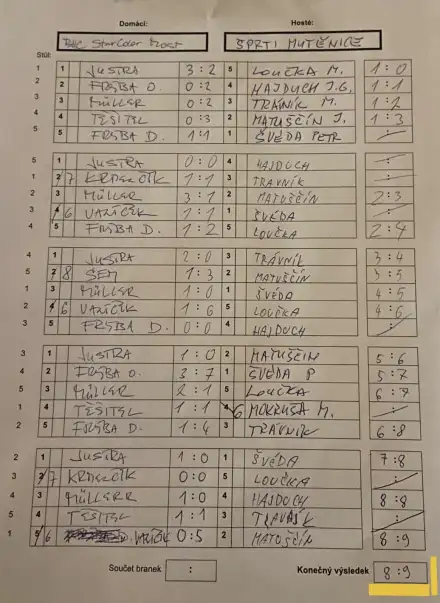 Domácí: Hosté:
BHC StarColor Most ŠPRTI MUTĚNICE
Stůl:
1 1 JUSTRA 3:2 5 LOUČKA M. 1:0
2 2 FRÝBA O. 0:2 4 HAJDUCH J.G. 1:1
3 3 MÜLLER 0:2 3 TRÁVNÍK M. 1:2
4 4 TĚŠITEL 0:3 2 MATUŠČÍN J. 1:3
5 5 FRÝBA D. 1:1 1 ŠVÉDA PETR :
5 1 JUSTRA 0:0 4 HAJDUCH :
1 7 KRDZČÍK 1:1 3 TRÁVNÍK :
2 3 MÜLLER 3:1 2 MATUŠČÍN 2:3
3 6 VAŘÍČEK 1:1 1 ŠVÉDA :
4 5 FRÝBA D. 1:2 5 LOUČKA 2:4
4 1 JUSTRA 2:0 3 TRÁVNÍK 3:4
5 8 SEM 1:3 2 MATUŠČÍN 3:5
1 3 MÜLLER 1:0 1 ŠVÉDA 4:5
2 6 VAŘÍČEK 1:6 5 LOUČKA 4:6
3 5 FRÝBA D. 0:0 4 HAJDUCH :
3 1 JUSTRA 1:0 2 MATUŠČÍN 5:6
4 2 FRÝBA O. 3:7 1 ŠVÉDA P 5:7
5 3 MÜLLER 2:1 5 LOUČKA 6:7
1 4 TĚŠITEL 1:1 6 MOKRUŠA M. :
2 5 FRÝBA D. 1:4 3 TRÁVNÍK 6:8
2 1 JUSTRA 1:0 1 ŠVÉDA 7:8
3 7 KRDZČÍK 0:0 5 LOUČKA :
4 3 MÜLLER 1:0 4 HAJDUCH 8:8
5 4 TĚŠITEL 1:1 3 TRÁVNÍK :
1 6 VAŘÍČEK 0:5 2 MATUŠČÍN 8:9
Součet branek : Konečný výsledek 8:9